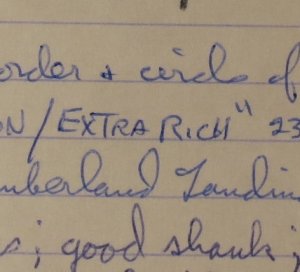 order + circle of
ON/EXTRA RICH" 23
mberland Landin
s; good shank;